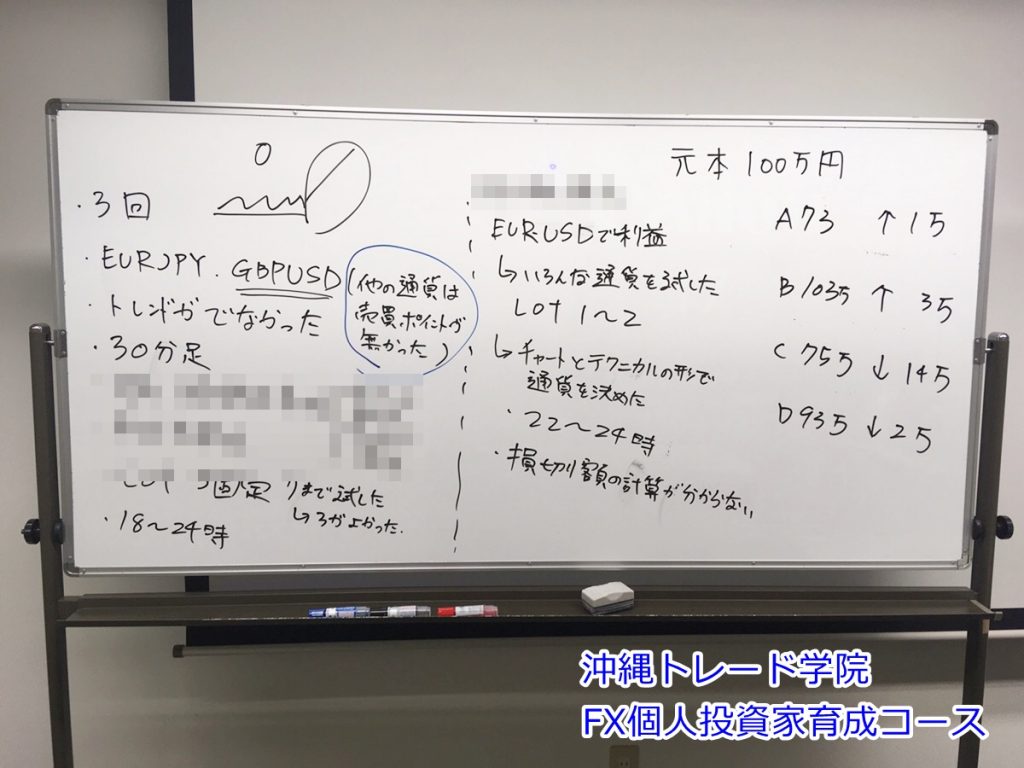 0
・3回
・EURJPY. GBPUSD
(他の通貨は
売買ポイントが
無かった)
・トレンドがでなかった
・30分足
LOT 3固定
まで試した
↳3がよかった.
・18〜24時
EURUSDで利益
↳いろんな通貨を試した
LOT 1〜2
↳チャートとテクニカルの形で
通貨を決めた
・22〜24時
・損切り額の計算が分からない
元本100万円
A 73 ↑ 15
B 1035 ↑ 35
C 755 ↓ 145
D 935 ↓ 25
沖縄トレード学院
FX個人投資家育成コース